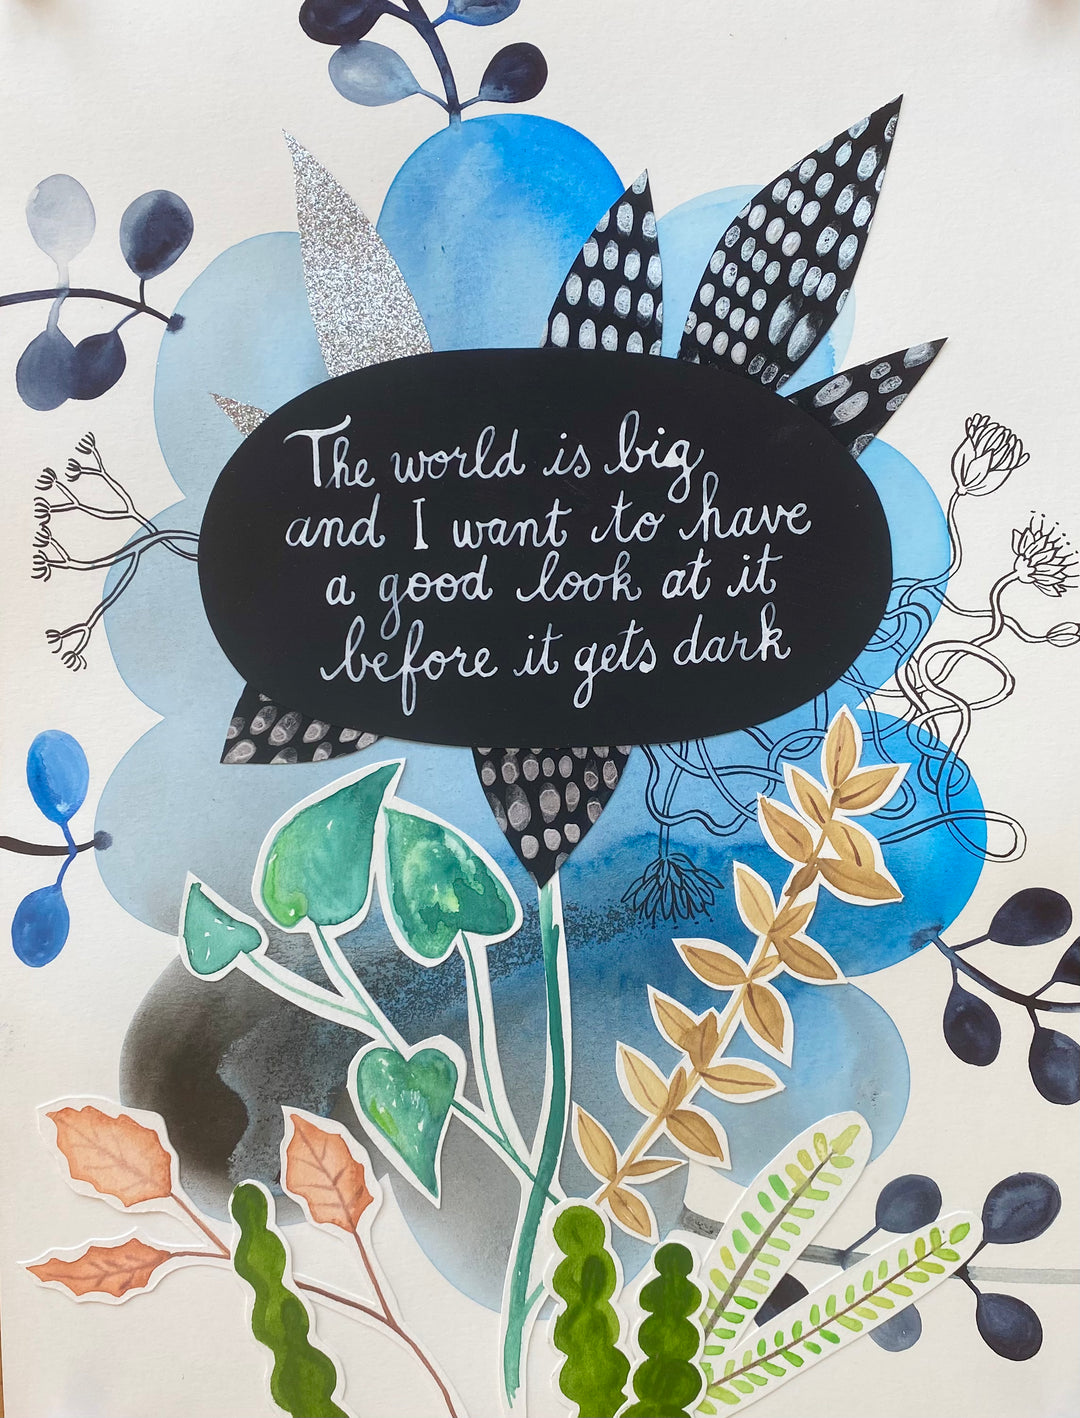 The world is big
and I want to have
a good look at it
before it gets dark